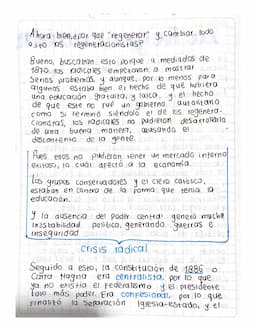 Ahora bien, ¿por qué "regenerar" y cambiar todo
esto los regeneracionistas?
Bueno, buscaban esto porque a mediados de
1870 los radicales empezaron a mostrar
serios problemas, y aunque, por lo menos para
algunos estaba bien el hecho de que hubiera
una educación gratuita y laica, y el hecho
de que este no fue un gobierno autoritario
como si terminó siéndolo el de los regenera-
cionistas, los radicales no pudieron desarrollarlo
de una buena manera, causando el
descontento de la gente.
Pues ellos no pudieron tener un mercado interno
exitoso, lo cual afectó a la economía.
Los grupos conservadores y el clero católico,
estaban en contra de la forma que tenía la
educación.
Y la ausencia del poder central generó mucha
inestabilidad política, generando guerras e
inseguridad
crisis radical
Seguido a esto, la constitución de 1886 o
Carta Magna era centralista, por lo que
ya no existía el federalismo y el presidente
tuvo más poder. Era confesional, por lo que
finalizó la separación iglesia-estado, y el